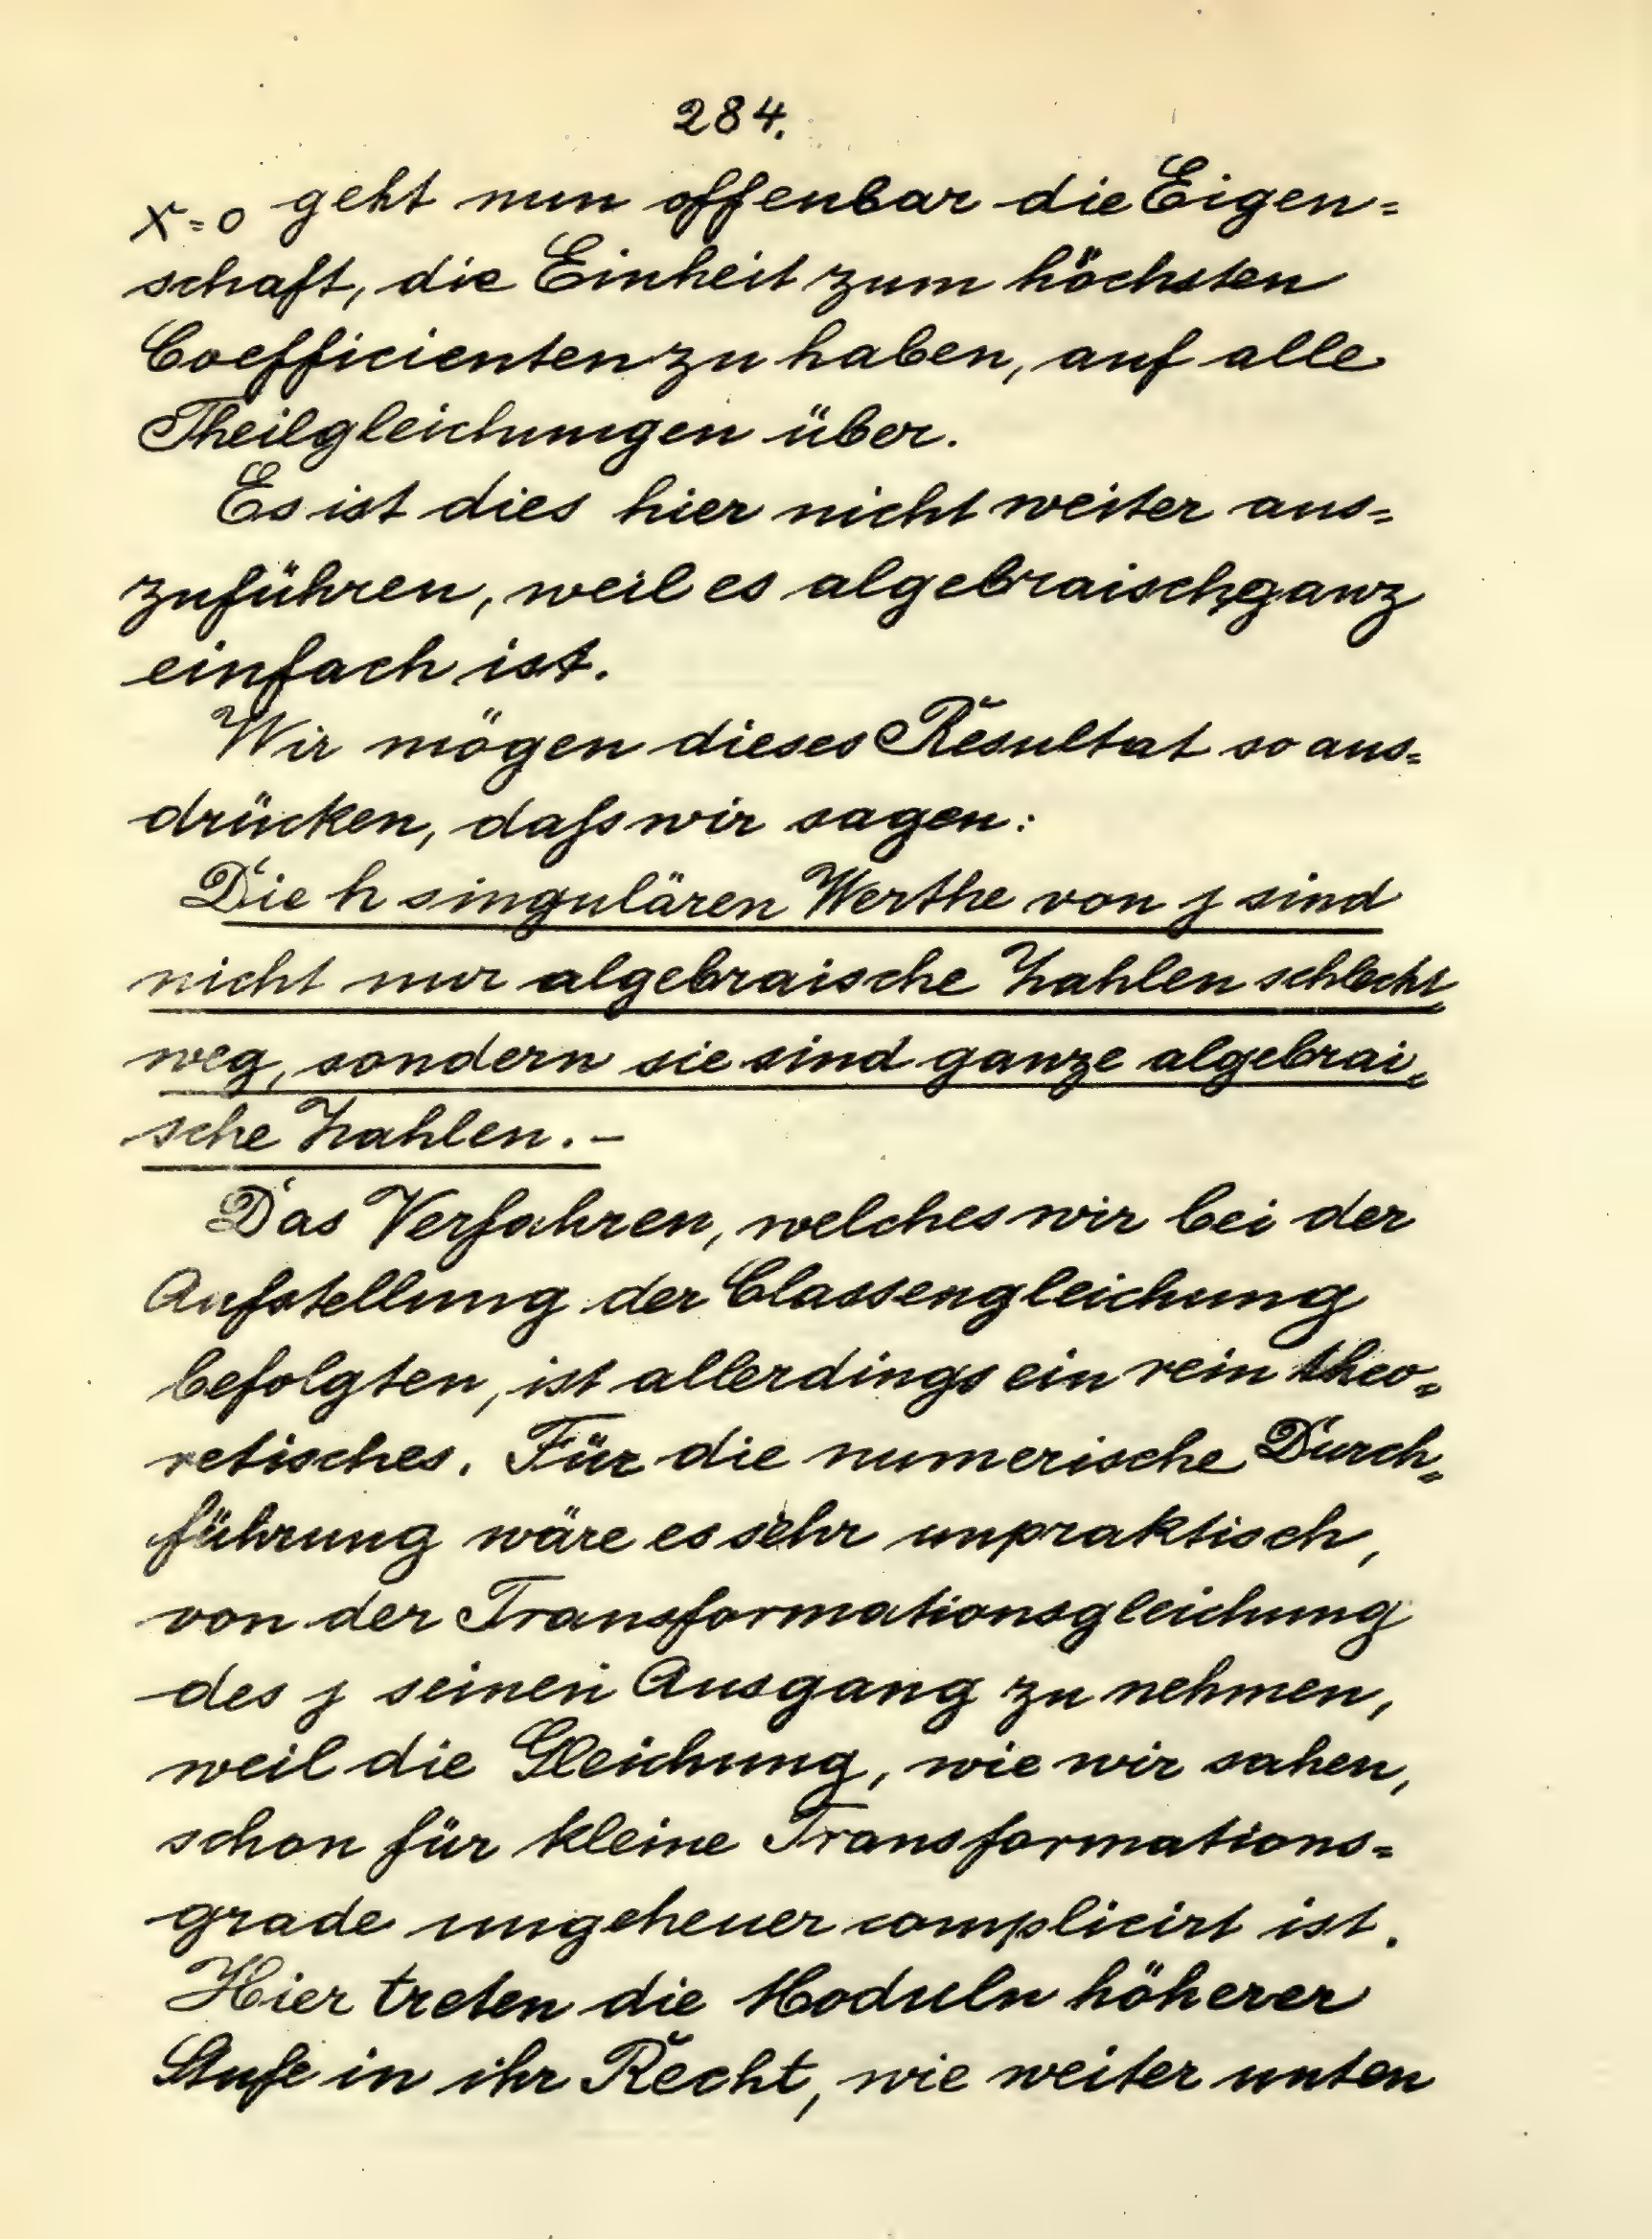 284.
X=0 geht nun offenbar die Eigen=
schaft, die Einheit zum höchsten
Coefficienten zu haben, auf alle
Theilgleichungen über.
Es ist dies hier nicht weiter aus=
zuführen, weil es algebraisch ganz
einfach ist.
Wir mögen dieses Resultat so aus=
drücken, daſs wir sagen:
Die h singulären Werthe von j sind
nicht nur algebraische Zahlen schlecht=
weg, sondern sie sind ganze algebrai=
sche Zahlen. –
Das Verfahren, welches wir bei der
Aufstellung der Classengleichung
befolgten, ist allerdings ein rein theo=
retisches. Für die numerische Durch=
führung wäre es sehr unpraktisch,
von der Transformationsgleichung
des j seinen Ausgang zu nehmen,
weil die Gleichung, wie wir sahen,
schon für kleine Transformations=
grade ungeheuer complicirt ist.
Hier treten die Moduln höherer
Stufe in ihr Recht, wie weiter unten